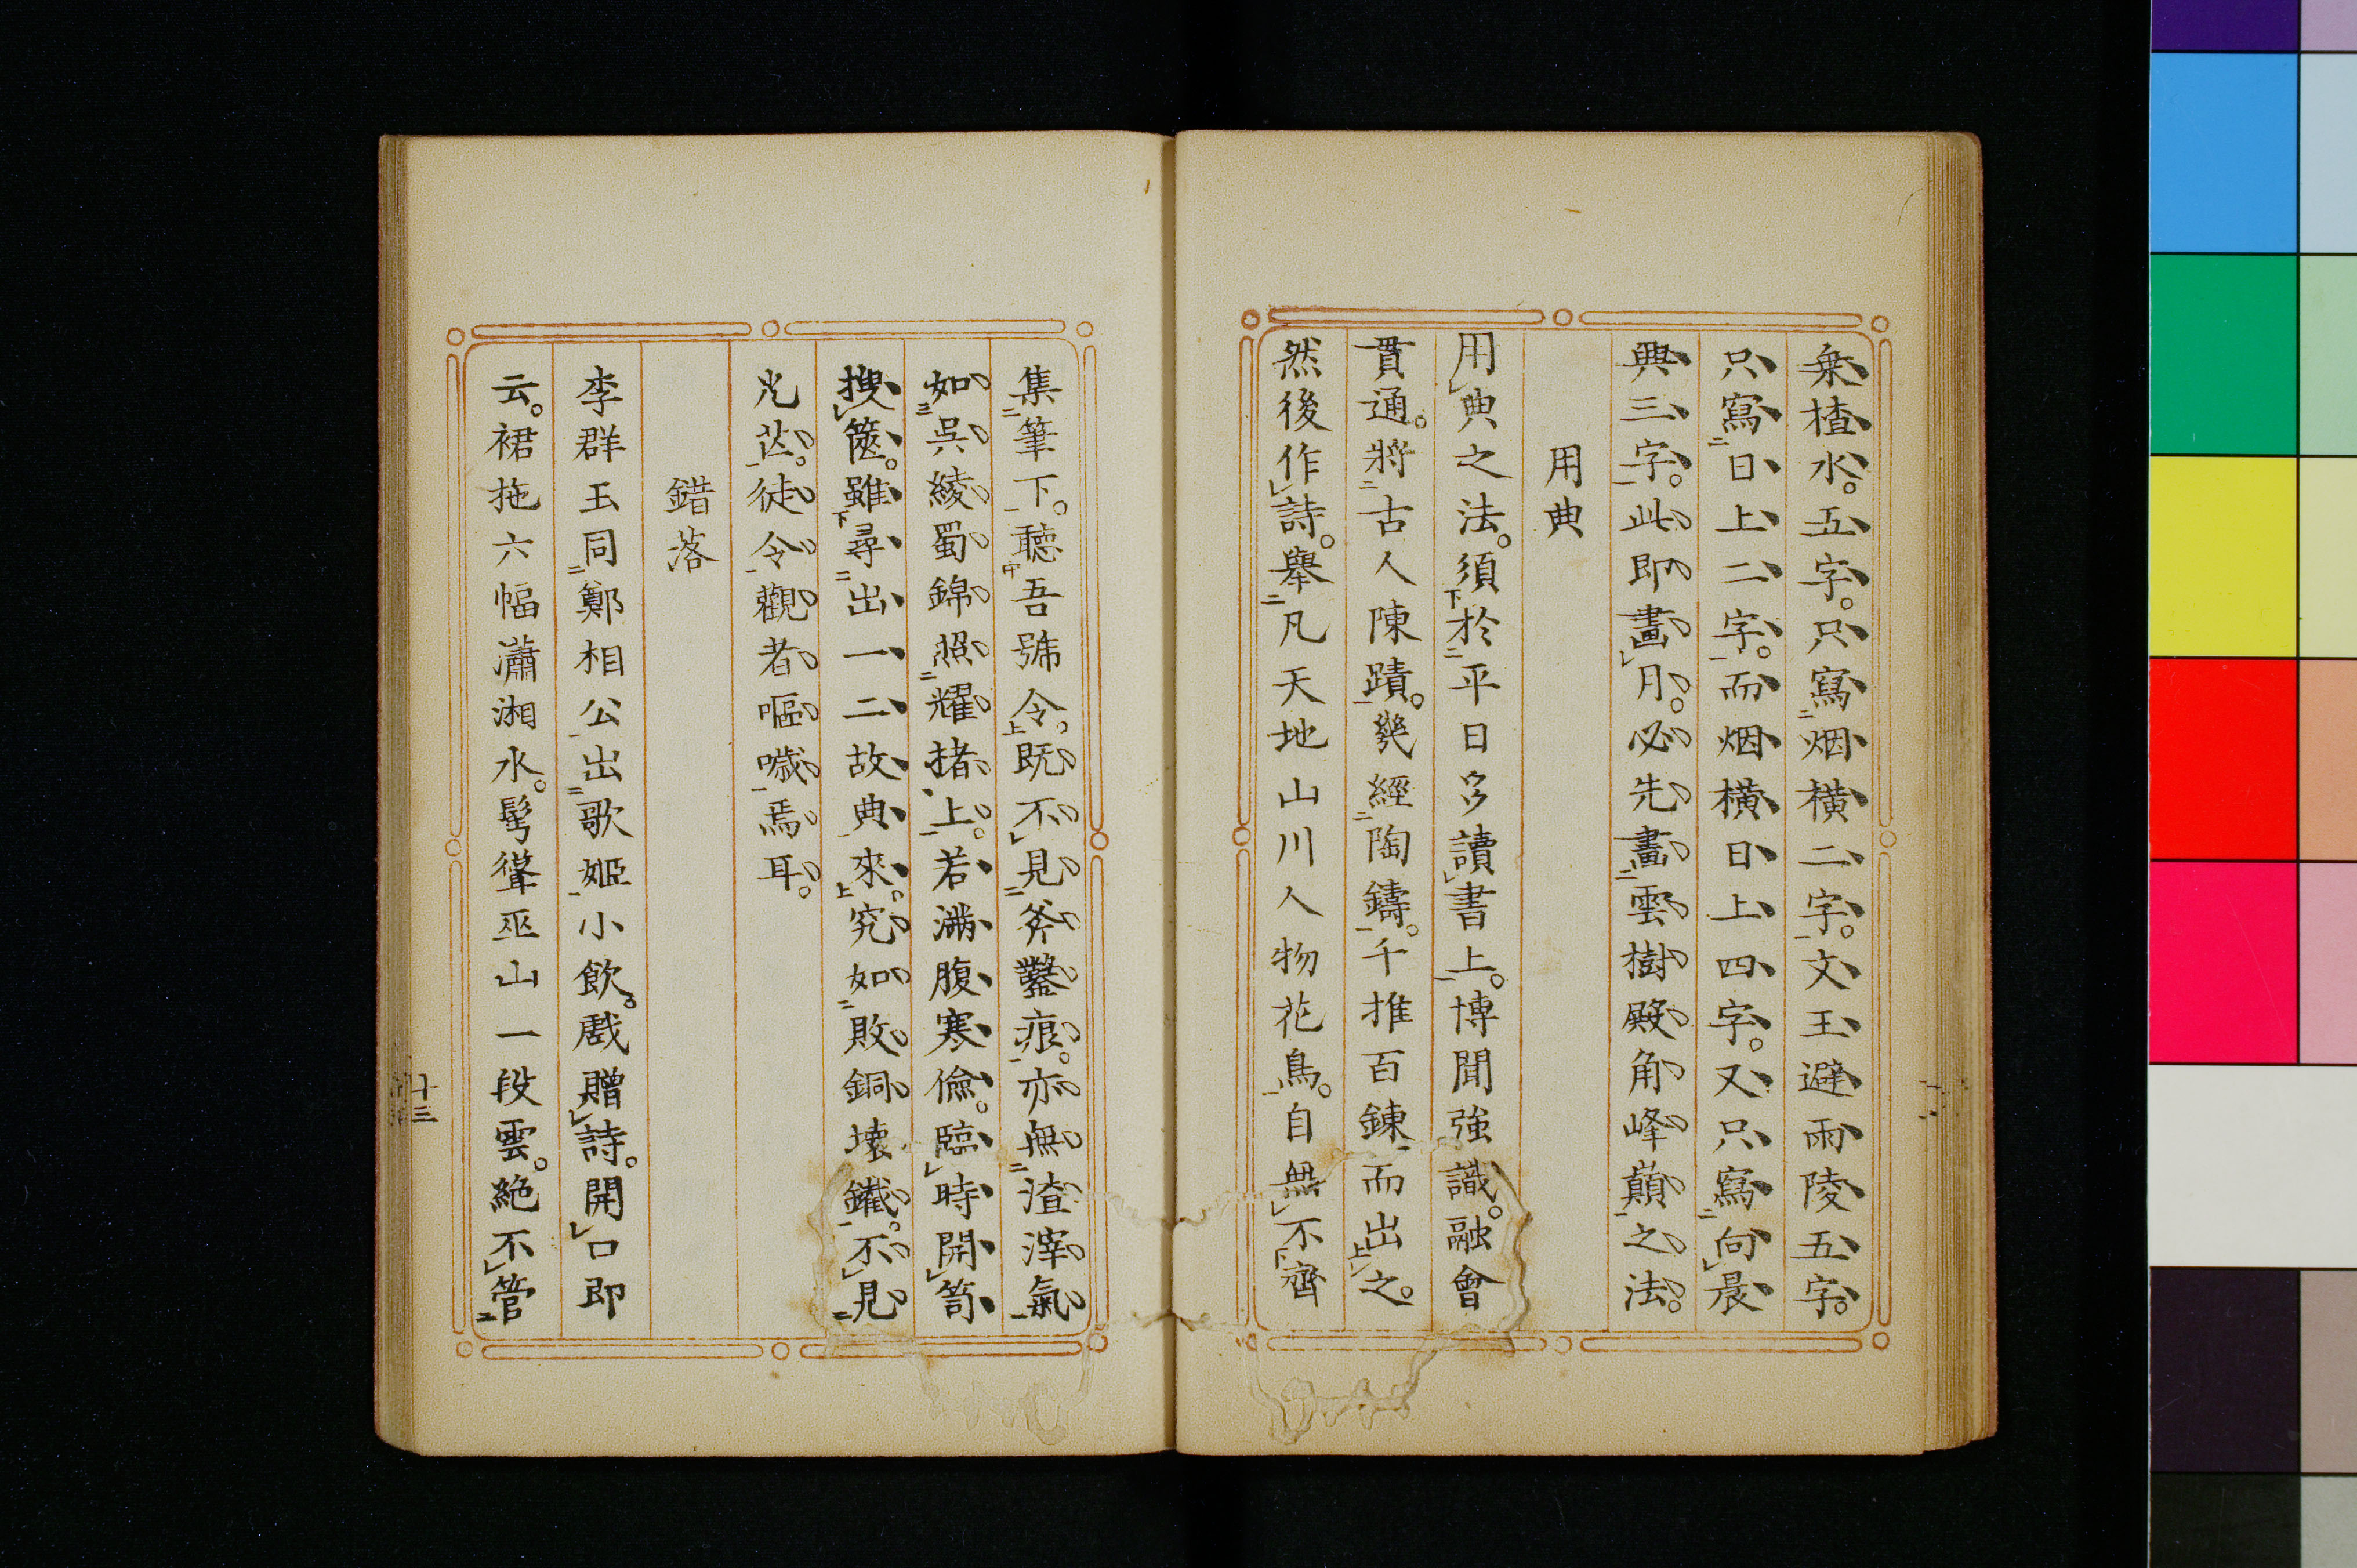 乗楂水。五字。只寫烟橫二字。文王避雨陵五字。
只寫日上二字。而烟橫日上四字。又只寫向晨
興三字。此即畫月。必先畫雲樹殿角峰巔之法。
用典
用典之法。須於平日多讀書上。博聞強識。融會
貫通。將古人陳蹟。幾經陶鑄。千推百鍊而出之。
然後作詩。舉凡天地山川人物花鳥。自無不齊
集筆下。聽吾號令。既不見斧鑿痕。亦無渣滓氣
如吳綾蜀錦照耀楮上。若滿腹寒儉。臨時開笥
搜篋。雖尋出一二故典來。究如敗銅壞鐵。不見
光芒。徒令觀者嘔噦焉耳。
錯落
李群玉同鄭相公出歌姬小飲。戲贈詩。開口即
云。裙拖六幅瀟湘水。髩聳巫山一段雲。絶不管
十三